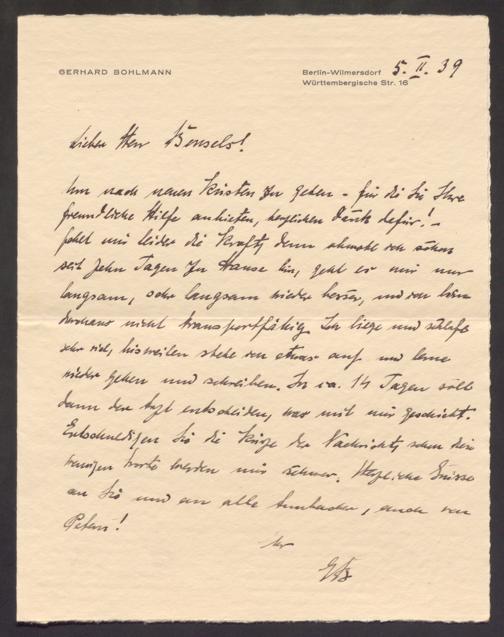 GERHARD BOHLMANN
Berlin-Wilmersdorf 5. II. 39
Württembergische Str. 16
Lieber Herr Bonsels!
Um nach neuen Küsten zu gehen – für die Sie Ihre
freundliche Hilfe anbieten, herzlichen Dank dafür! –
fehlt mir leider die Kraft, denn obwohl ich schon
seit zehn Tagen zu Hause bin, geht es mir nur
langsam, sehr langsam wieder besser, und ich bin
durchaus nicht transportfähig. Ich liege und schlafe
sehr viel, bisweilen stehe ich etwas auf und lerne
wieder gehen und schreiben. In ca. 14 Tagen soll
dann der Arzt entscheiden, was mit mir geschieht.
Entschuldigen Sie die Kürze der Nachricht, schon die
wenigen Worte werden mir schwer. Herzliche Grüsse
an Sie und an alle Ambacher, auch von
Peteru!
Ihr